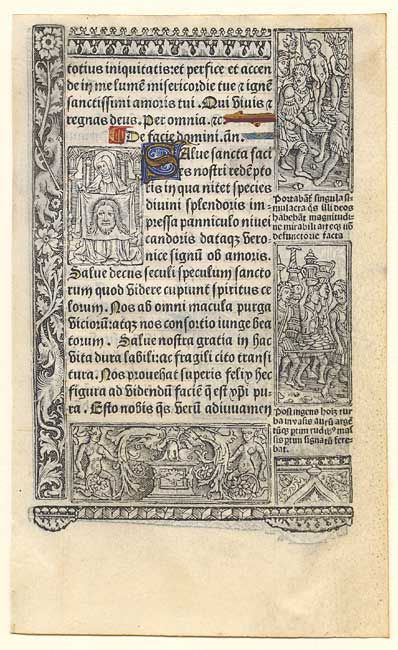 totius iniquitatis:et perfice et accen
de in me lumē misericordie tue & ignē
sanctissimi amoris tui. Qui viuis &
regnas deus. Per omnia. &c.
De facie domini. ān.
SAlue sancta faci
es nostri redēpto
ris in qua nitet species
diuini splendoris im-
pressa panniculo niuei
candoris dataqȝ vero
nice signū ob amoris.
Salue decus seculi speculum sancto
rum quod videre cupiunt spiritus ce
lorum. Nos ab omni macula purga
viciorum:atqȝ nos consortio iunge bea
torum. Salue nostra gratia in hac
vita dura labili:ac fragili cito transi
tura. Nos prouehat superis felix hec
figura ad videndū faciē q̄ est xp̄i pu
ra. Esto nobis q̄s verū adiuuamen
Portabāt singula si-
mulacra
illi deos
habebāt magnitudi
ne mirabili
defunctorie facta
Post ingens
tur
ba